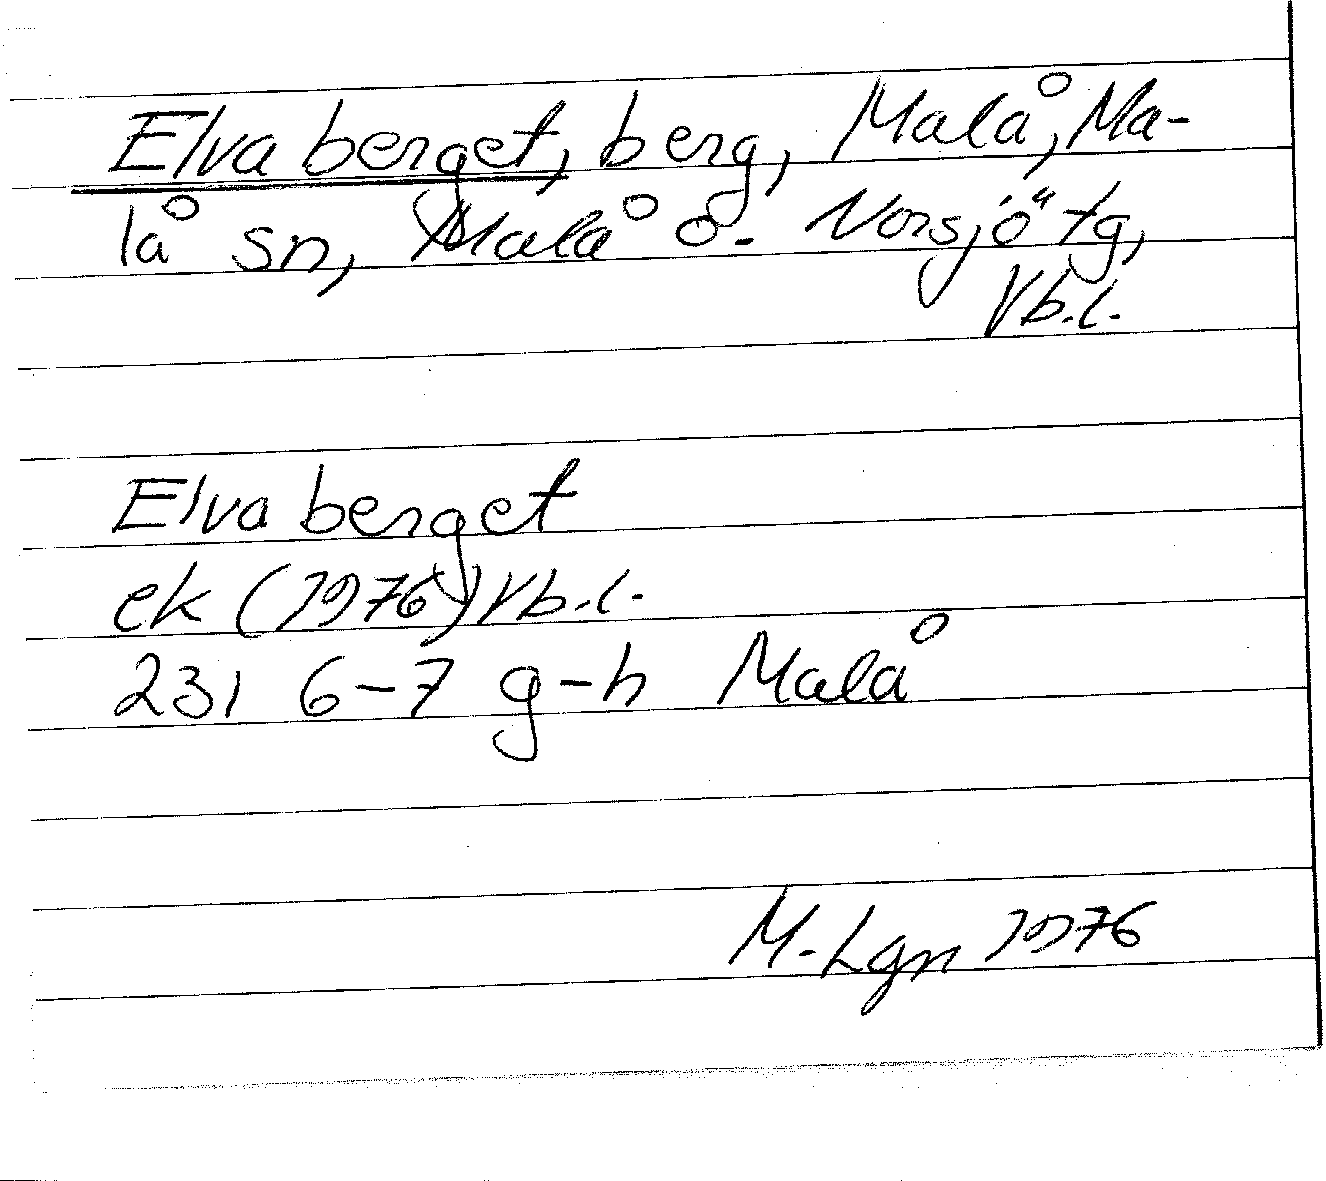 Elvaberget, berg, Malå, Ma-
lå sn, Malå o. Norsjö tg,
Vb.l.
Elvaberget
ek (1976) Vb.l.
231 6-7 g-h Malå
M-Lgn 1976